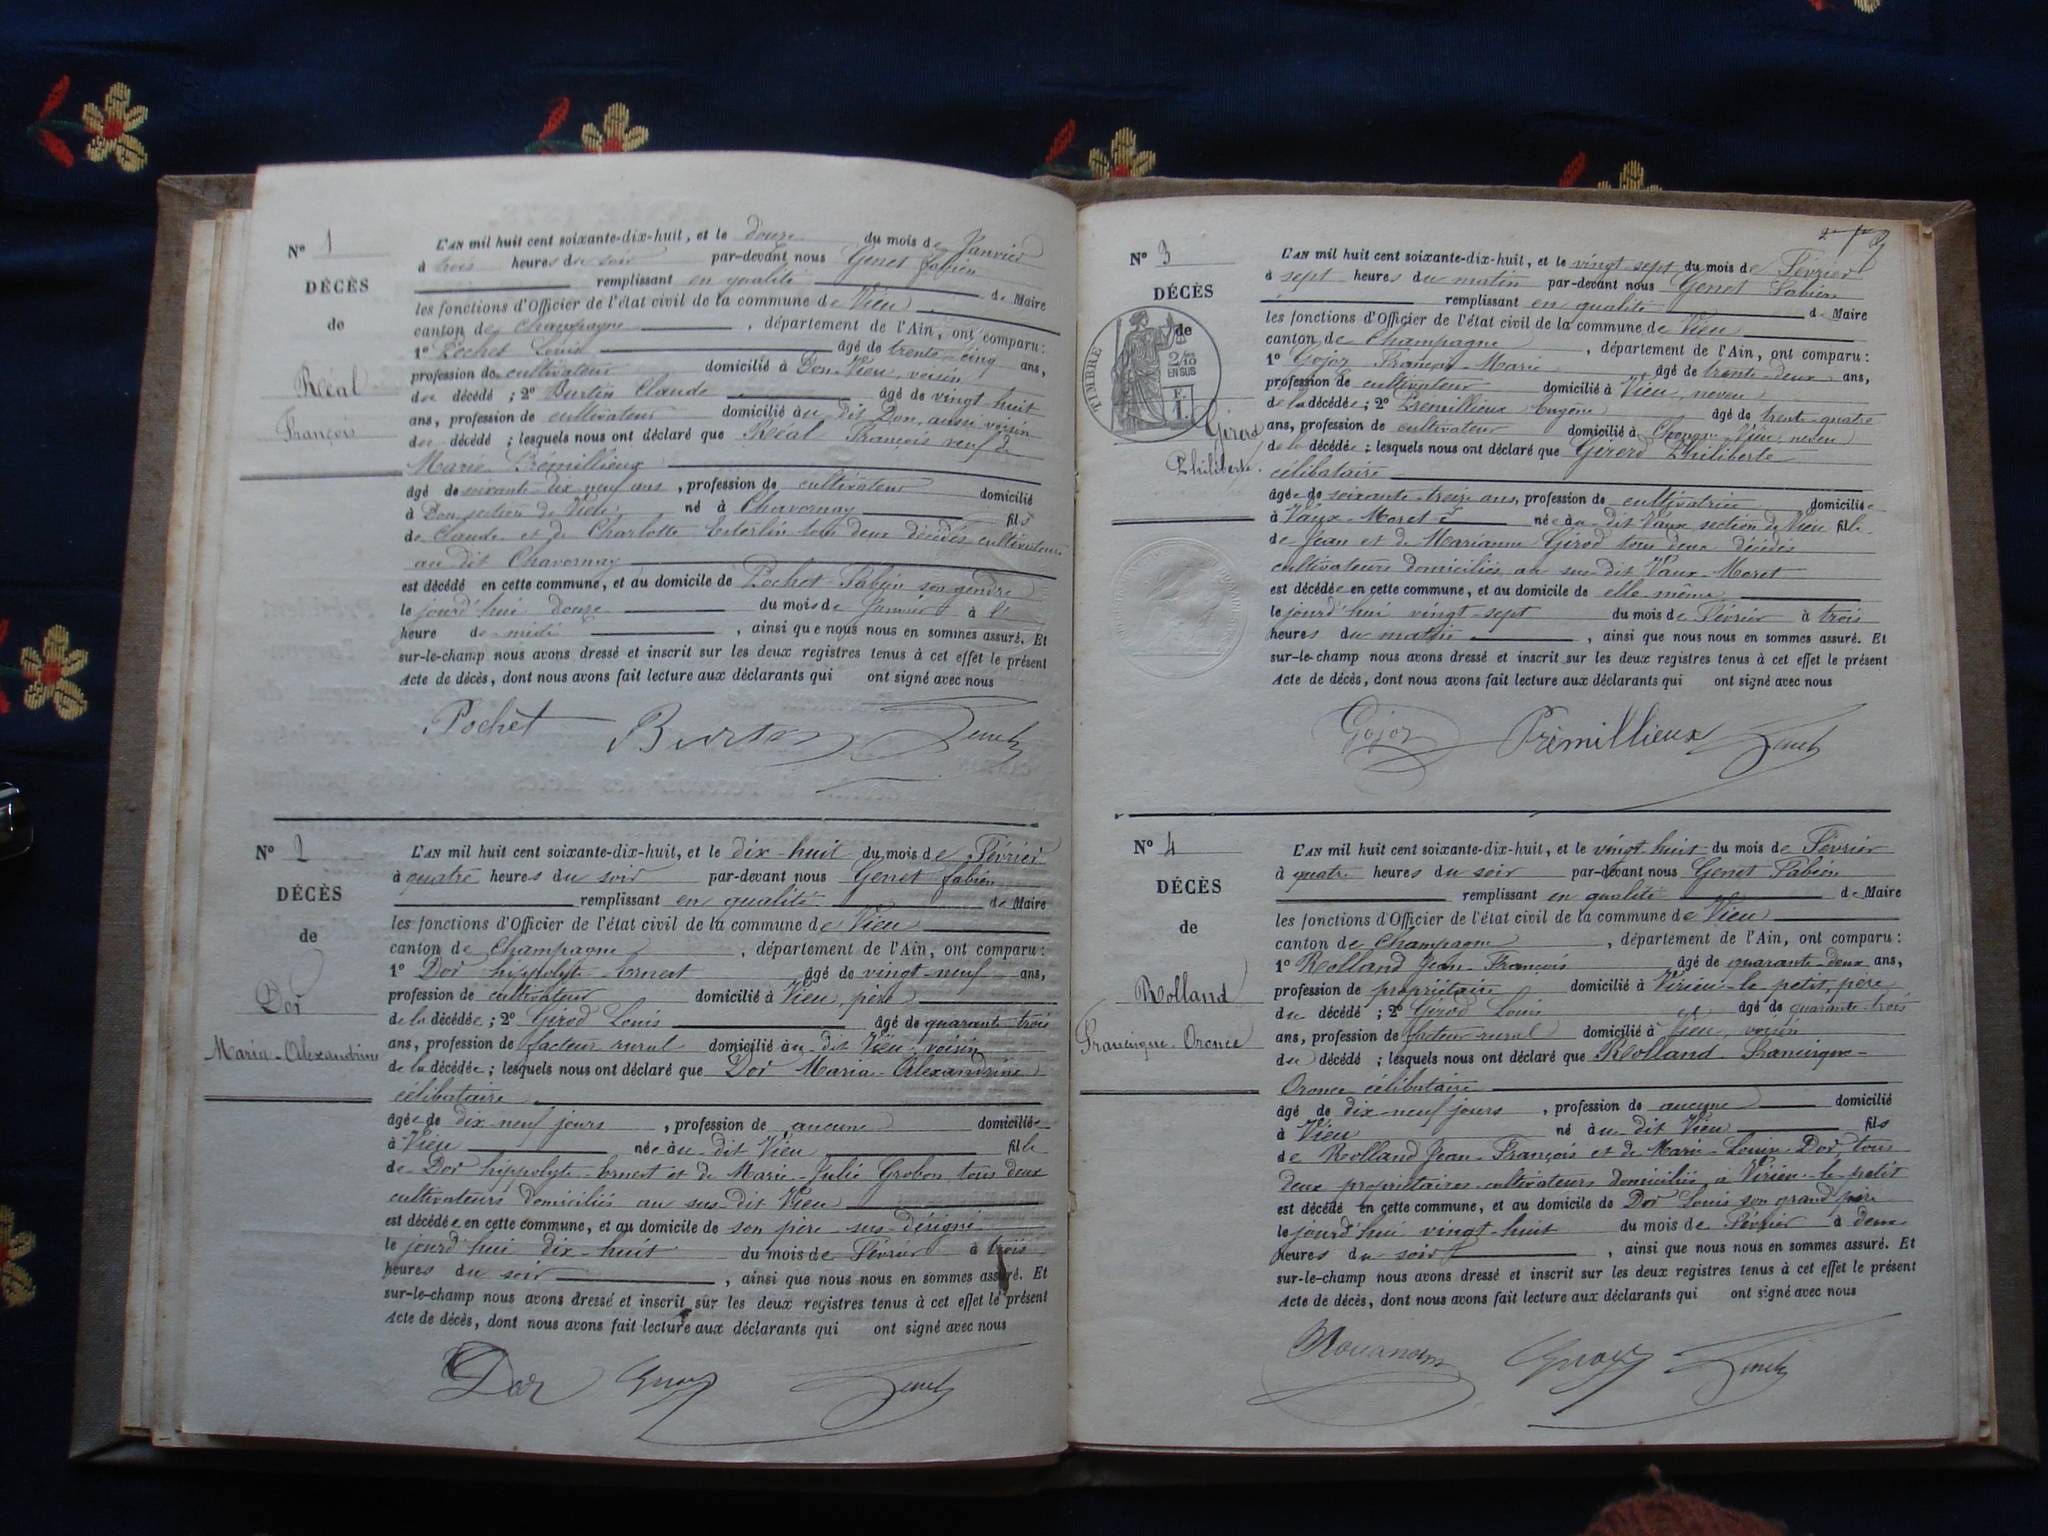 N° 1
DÉCÈS
de
Réal
François
L'AN mil huit cent soixante-dix-huit, et le douze du mois de Janvier
à trois heures du soir par-devant nous Genet Fabien
remplissant en qualité de Maire
les fonctions d'Officier de l'état civil de la commune de Vieu
canton de Champagne, département de l'Ain, ont comparu :
1° Pochet Louis âgé de trente-cinq ans,
profession de cultivateur domicilié à Don-Vieu, voisin
du décédé ; 2° Burtin Claude âgé de vingt huit
ans, profession de cultivateur domicilié au dit Don, aussi voisin
du décédé ; lesquels nous ont déclaré que Réal François veuf de
Marie Prémillieux
âgé de soixante-dix neuf ans, profession de cultivateur domicilié
à Don section de Vieu né à Chavornay fils
de Claude et de Charlotte tous deux décédés cultivateurs
au dit Chavornay
est décédé en cette commune, et au domicile de Pochet Fabien son gendre
le jourd'hui douze du mois de Janvier à l'
heure de midi, ainsi que nous nous en sommes assuré. Et
sur-le-champ nous avons dressé et inscrit sur les deux registres tenus à cet effet le présent
Acte de décès, dont nous avons fait lecture aux déclarants qui ont signé avec nous
Pochet Burtin Genet
N° 2
DÉCÈS
de
Dor
Maria-Alexandrine
L'AN mil huit cent soixante-dix-huit, et le dix-huit du mois de Février
à quatre heures du soir par-devant nous Genet Fabien
remplissant en qualité de Maire
les fonctions d'Officier de l'état civil de la commune de Vieu
canton de Champagne, département de l'Ain, ont comparu :
1° Dor hippolyte-Ernest âgé de vingt-neuf ans,
profession de cultivateur domicilié à Vieu, père
de la décédée ; 2° Girod Louis âgé de quarante-trois
ans, profession de facteur rural domicilié au dit Vieu, voisin
de la décédée ; lesquels nous ont déclaré que Dor Maria-Alexandrine
célibataire
âgée de dix-neuf jours, profession de aucune domiciliée
à Vieu née au dit Vieu fille
de Dor hippolyte-Ernest et de Marie-Julie Grobon, tous deux
cultivateurs domiciliés au sus-dit Vieu
est décédée en cette commune, et au domicile de son père sus-désigné
le jourd'hui dix-huit du mois de Février à trois
heures du soir, ainsi que nous nous en sommes assuré. Et
sur-le-champ nous avons dressé et inscrit sur les deux registres tenus à cet effet le présent
Acte de décès, dont nous avons fait lecture aux déclarants qui ont signé avec nous
Dor Genet
N° 3
DÉCÈS
de
TIMBRE
2/10
EN SUS
F.
1.
Girerd
Philiberte.
L'AN mil huit cent soixante-dix-huit, et le vingt-sept du mois de Février
à sept heures du matin par-devant nous Genet Fabien
remplissant en qualité de Maire
les fonctions d'Officier de l'état civil de la commune de Vieu
canton de Champagne, département de l'Ain, ont comparu :
1° Gojoz François-Marie âgé de trente-deux ans,
profession de cultivateur domicilié à Vieu, neveu
de la décédée ; 2° Prémillieux Eugène âgé de trente-quatre
ans, profession de cultivateur domicilié à neveu
de la décédée ; lesquels nous ont déclaré que Girerd Philiberte
célibataire
âgée de soixante-treize ans, profession de cultivatrice domiciliée
à Vaux-Moret née au dit Vaux section de Vieu fille
de Jean et de Marianne Girod tous deux décédés
cultivateurs domiciliés au sus-dit Vaux-Moret
est décédée en cette commune, et au domicile de elle-même
le jourd'hui vingt-sept du mois de Février à trois
heures du matin, ainsi que nous nous en sommes assuré. Et
sur-le-champ nous avons dressé et inscrit sur les deux registres tenus à cet effet le présent
Acte de décès, dont nous avons fait lecture aux déclarants qui ont signé avec nous
Gojoz Prémillieux Genet
N° 4
DÉCÈS
de
Rolland
Francisque-Oronce
L'AN mil huit cent soixante-dix-huit, et le vingt-huit du mois de Février
à quatre heures du soir par-devant nous Genet Fabien
remplissant en qualité de Maire
les fonctions d'Officier de l'état civil de la commune de Vieu
canton de Champagne, département de l'Ain, ont comparu :
1° Rolland Jean-François âgé de quarante-deux ans,
profession de propriétaire domicilié à Virieu-le-petit, père
du décédé ; 2° Girod Louis âgé de quarante-trois
ans, profession de facteur rural domicilié à Vieu, voisin
du décédé ; lesquels nous ont déclaré que Rolland Francisque-
Oronce célibataire
âgé de dix-neuf jours, profession de aucune domicilié
à Vieu né au dit Vieu fils
de Rolland Jean-François et de Marie-Louise Dor, tous
deux propriétaires-cultivateurs domiciliés à Virieu-le-petit
est décédé en cette commune, et au domicile de Dor Louis son grand père
le jourd'hui vingt-huit du mois de Février à deux
heures du soir, ainsi que nous nous en sommes assuré. Et
sur-le-champ nous avons dressé et inscrit sur les deux registres tenus à cet effet le présent
Acte de décès, dont nous avons fait lecture aux déclarants qui ont signé avec nous
Genet